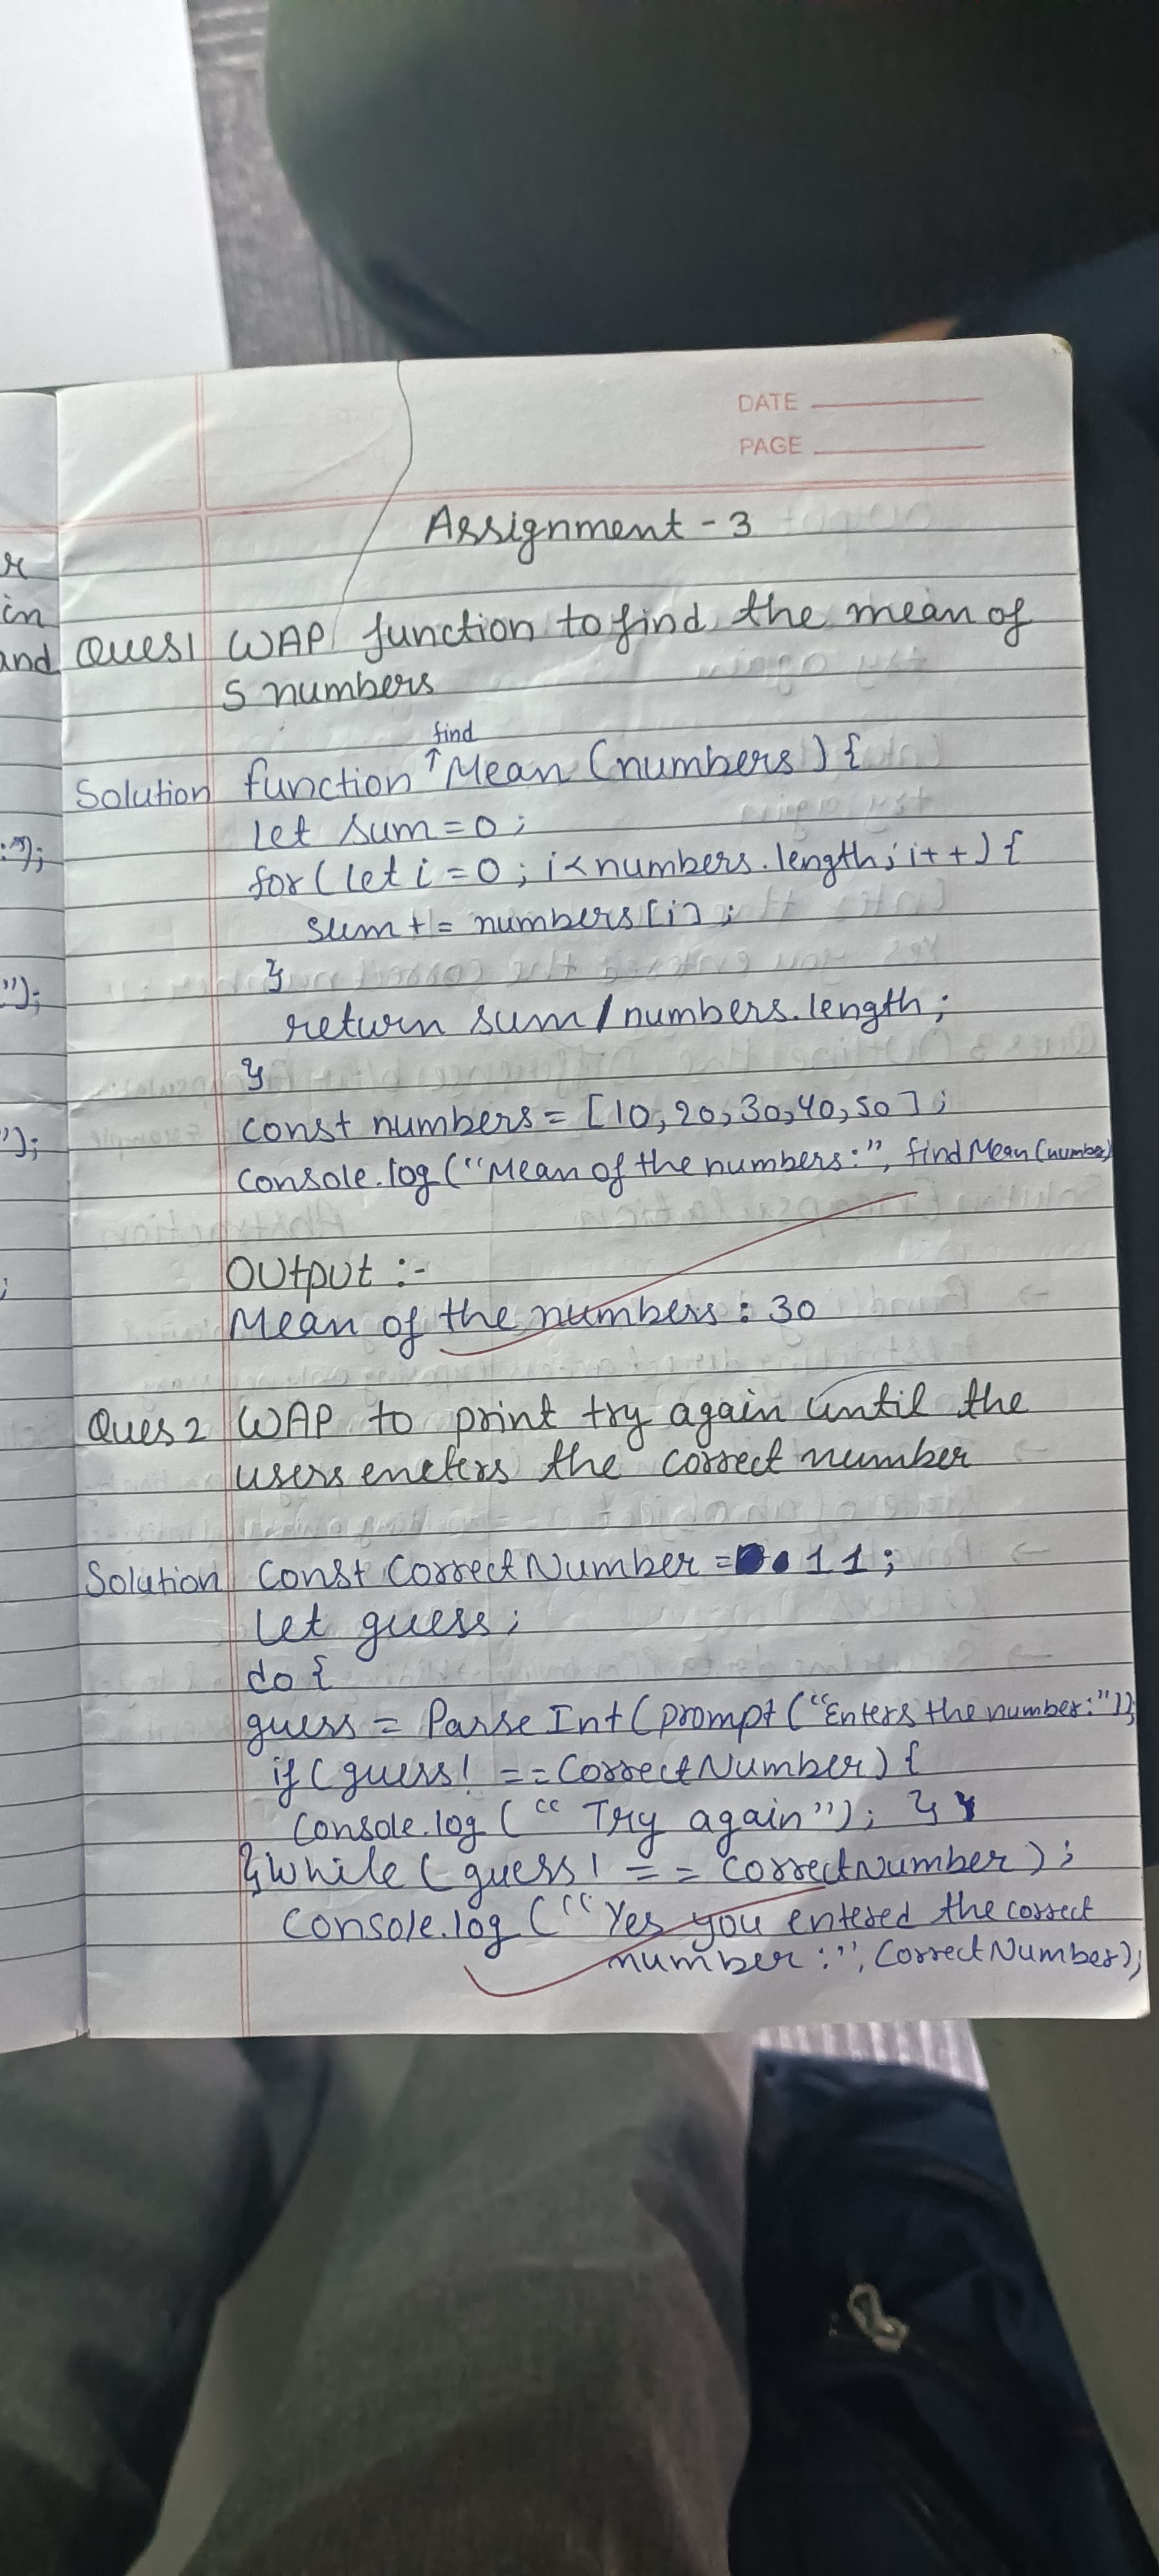 DATE
PAGE
Assignment - 3
r
in
and
Ques1 WAP function to find the mean of
5 numbers
find
Solution function ↑ Mean (numbers) {
let sum = 0;
:");
for ( let i = 0 ; i < numbers.length; i++) {
sum += numbers[i];
}
");
return sum / numbers.length;
}
const numbers = [10, 20, 30, 40, 50];
");
Console.log ("Mean of the numbers:", findMean (number)
;
OUtpUt :-
Mean of the numbers : 30
Ques 2 WAP to print try again until the
users eneters the correct number
Solution Const CorrectNumber = 11;
Let guess;
do {
guess = Parse Int (prompt ("Enters the number:"));
if ( guess! == CorrectNumber) {
Console.log ( " Try again"); }
} While ( guess! == CorrectNumber ) ;
Console.log ( "Yes you entered the correct
number :", CorrectNumber);